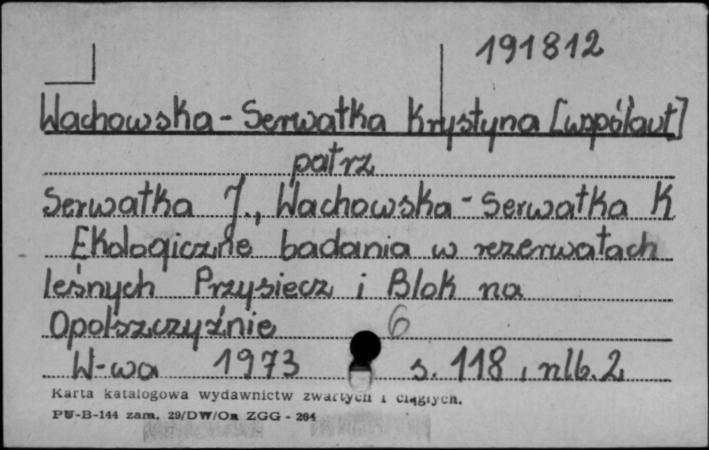 191812
Wachowska-Serwatka Krystyna [współaut]
patrz
Serwatka J., Wachowska-Serwatka K
Ekologiczne badania w rezerwatach
leśnych Przysiecz i Blok na
Opolszczyźnie 6
W-wa 1973 s. 118, nlb. 2
Karta katalogowa wydawnictw zwartych i ciągłych.
PU-B-144 zam. 29/DW/On ZGG - 264